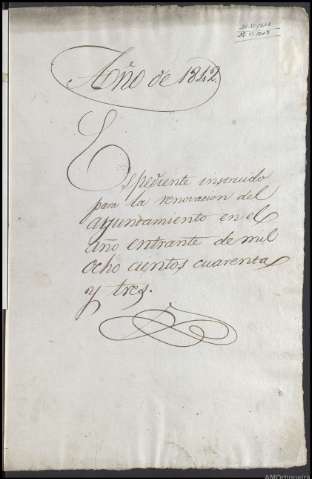 Año de 1842
Espediente instruido
para la renovacion del
ayuntamiento en el
año entrante de mil
ocho cientos cuarenta
y tres.